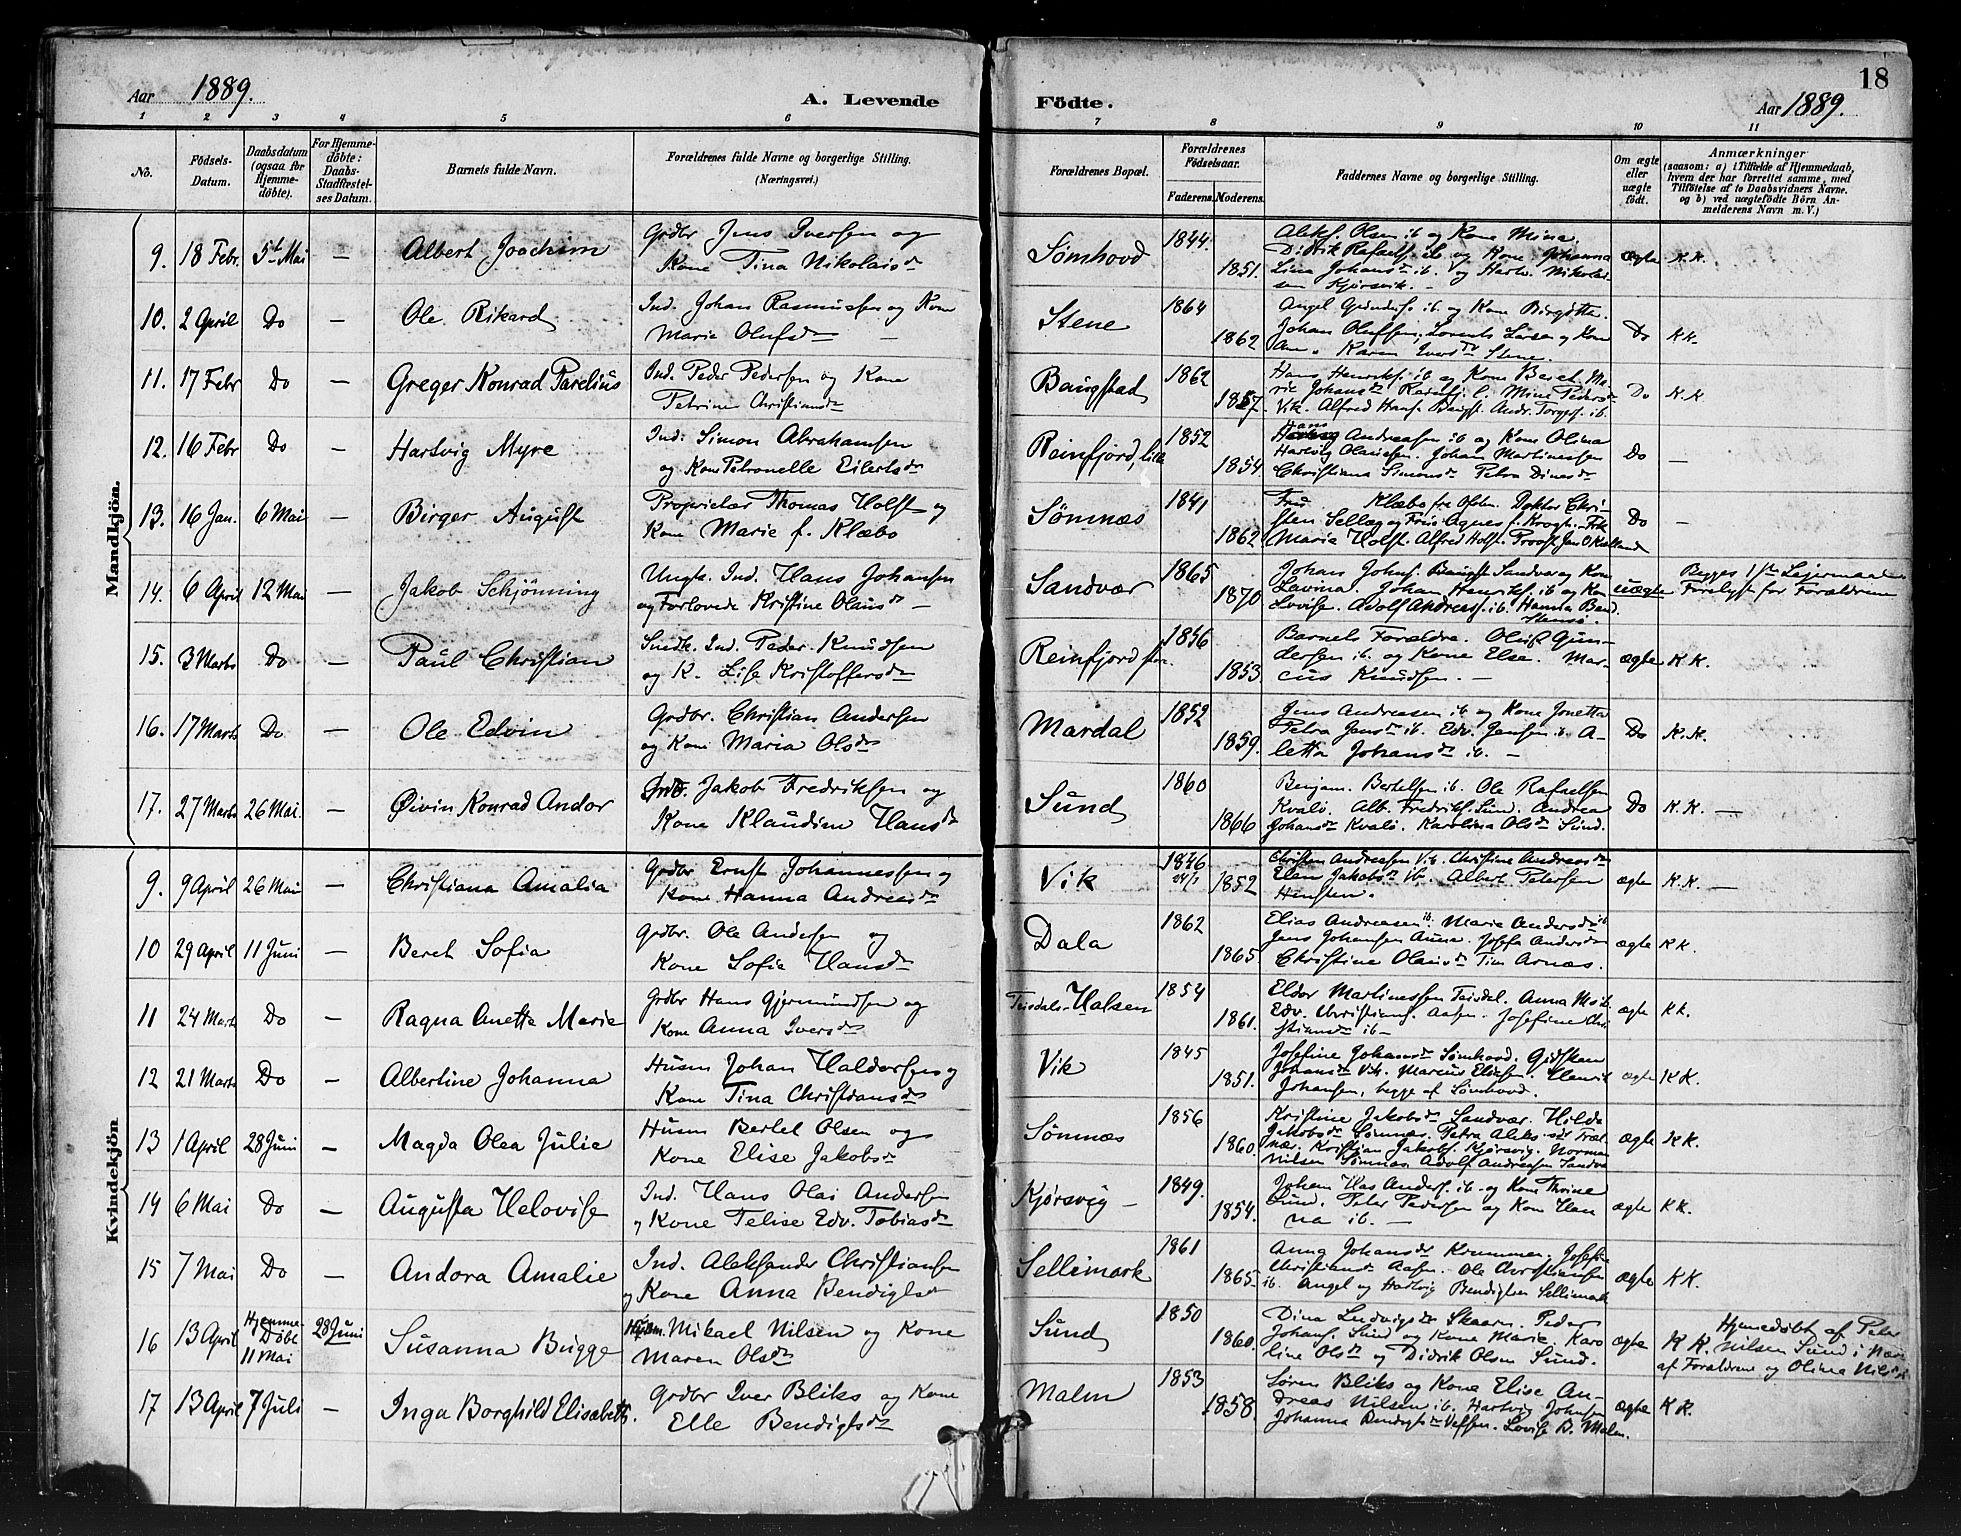 Aar 1889.
A. Levende
Födte.
Aar 1889.
18
1 2 3 4 5 6 7 8 9 10 11
No.
Födsels-Datum.
Daabsdatum (ogsaa for Hjemme-döbte).
For Hjemme-döbte: Daabs-Stadfæstel-ses Datum.
Barnets fulde Navn.
Forældrenes fulde Navne og borgerlige Stilling. (Næringsvei.)
Forældrenes Bopæl.
Forældrenes Födselsaar.
Faderens. Moderens.
Faddernes Navne og borgerlige Stilling.
Om ægte eller uægte födt.
Anmærkninger
(saasom: a) i Tilfælde af Hjemmedaab, hvem der har forrettet samme, med Tilföielse af to Daabsvidners Navne. og b) ved uægtefödte Börn An-melderens Navn m. V.)
Mandkjön.
9. 18 Febr. 5te Mai — Albert Joachim
Grdbr Jens Iversen og
Kone Tina Nikolaisdr
Sømhovd 1844. 1851.
Aleks. Olsen ib og Kone Mina.
Didrik Rafaels. ib og Kone Johanna
Lina Johansdr ib. og Hartv. Nikolai-
sen Kjørsvik. —
ægte K.K.
10. 2 April Do — Ole Rikard
Ind. Johan Rasmussen og Kone
Maria Olufsdr —
Stene 1864 1862
ib og Kone Birgitte.
Johan Oluffsen, Lorents Larsen og Kone
Karen Iversdr Stene.
Do K.K.
11. 17 Febr Do — Greger Konrad Parelius
Ind. Peder Pedersen og Kone
Petrine Christiansdr
Baugstad 1862 1857.
Hans Henriks. ib og Kone Beret. Ma-
rie Johansdr Reinfj. l. Mine Pedersdr
Vik. Alfred Hans. Baugst. Andr. Torgs. ib.
Do K.K
12. 16 Febr Do — Hartvig Myre
Ind. Simon Abrahamsen
og Kone Petronelle Eilertsdr
Reinfjord, lill 1852 1854
Hans Andreasen ib og Kone Olina
Hartvig Olaisen. Johan Martinussen
Christiana Simonsdr Petra Dinesdr
Do —
13. 16 Jan. 6 Mai — Birger August
Proprietær Thomas Holst og
Kone Marie f. Klæbo
Sömnæs 1841 1862
Fru Klæbo fra Doktor Chri-
sten Selläg og Frue Agnes f. Krogh. Frk
Maria Holst. Alfred Holst. Provst Jan O Kalland
Do —
14. 6 April 12 Mai — Jakob Schjönning
Ungk. Ind. Hans Johansen
og Forlovede Kristine Olausdr —
Sandvær 1865 1870
Johan Johns. Baugst Sandvær og Kone
Lavina. Johan Henriks. ib og Kone
Lovise. Adolf Andreas. ib. Hanna Bend.
uægte
Begges 1ste Leiermaal
Forelyst for Forældrene
15. 3 Marts Do — Paul Christian
Ind. Peder Knudsen
og K. Lise Kristoffersdr
Reinfjord stor. 1856 1853.
Barnets Forældre. Oluf Gun-
dersen ib. og Kone Else. Mar-
cus Knudsen. —
ægte K.K.
16. 17 Marts Do — Ole Edvin
Grdbr. Christian Andersen
og Kone Maria Olsdr
Mardal 1852 1859.
Jens Andreasen ib og Kone Jonetta
Petra Jensdr ib. Edv. Jensen ib A-
letta Johansdr ib. —
Do K.K.
17. 27 Marts 26 Mai. — Øivin Konrad Andor
Jakob Fredriksen og
Kone Klaudine Hansdr
Sund 1860 1866
Benjam. Bertelsen ib. Ole Rafaelsen
Kvalö. Alb. Fredriks. Sund. Andrea
Johansdr Kvalö. Karolina Olsdr Sund.
Do K.K. —
Kvindekjön
9. 9 April 26 Mai — Christiana Amalia
Grdbr Ernst Johannessen og
Kone Hanna Andreasdr
Vik 1846 24/1 1852
Christen Andreasen Vik. Christine Andreasdr
Elen Jakobsdr ib. Albert Petersen
ægte K.K. —
10 29 April 11 Juni — Beret Sofia
Grdbr. Ole Andersen og
Kone Sofia Hansdr
Dala 1862 1865
Elias Andreasen ib. Marie Andersdr ib
Jens Johansen Aune. Josefa Andersdr
Christine Olausdr Tim Arnæs.
ægte KK.
11 24 Marts Do — Ragna Anetta Marie
Grdbr Hans Gjermundsen og
Kone Anna Iversdr
Teisdals-Halsen 1854 1861.
Eldor Martinussen Teisdal. Anna Mo ib
Edv. Christians. Aasen. Josefine Chri-
stiansdr ib —
ægte KK.
12 21 Marts Do — Albertine Johanna
Husm Johan Haldorsen og
Kone Tina Christiansdr
Vik 1845 1851.
Josefine Johansdr Sømhovd. Gidsken
Johansdr Vik. Marcus Eliasen. Henrik
Johansen, begge af Sømhovd.
ægte KK.
13 1 April 28 Juni — Magda Olea Julie
Husm Bertel Olsen og
Kone Elise Jakobsdr
Sömnæs 1856 1860.
Kristine Jakobsdr Sandvær. Hilda
Jakobsdr Sömnæs. Petra Aleks.
Kristian Jakobs. Kjørsvig. Norman
Nilsen Sømnæs Adolf Andreasen Sandvæ
ægte KK.
14 6 Mai Do — Augusta Helovise
Ind. Hans Olai Andersen
og Kone Telise Edv. Tobiasdr
Kjørsvig — 1849. 1854.
Johan Has Anders. ib. og Kone Trine
Sund. Peter Pedersen og Kone Han
na ib. —
ægte KK.
15 7 Mai Do — Andora Amalie
Ind. Aleksander Christiansen
og Kone Anna Bendigtsdr
Sellimark 1861 1865.
Anna Johansdr Krummen. Josefine
Christiansdr Aasen. Ole Christiansen
ib. Angel og Hartvig Bendigtsen Sellimark
ægte KK.
16 13 April Hjemme-Döbt 11 Mai 28 Juni Susanna Bugge
Mikael Nilsen og Kone
Maren Olsdr
Sund 1850 1860.
Dina Ludvigsdr Skaarn. Peder
Johans. Sund og Kone Marie. Karo
line Olsdr og Didrik Olsen Sund.
ægte
Hjemedöbt af Peter
KK. Nilsen Sund i Nær
af Forældrene og Olina Nilsdr
17 13 April 7 Juli — Inga Borghild Elisabeth.
Grdbr Iver Bliks og Kone
Elle Bendigtsdr
Malm 1853 1858.
Søren Bliks og Kone Elise An-
dreas Nilsen ib. Hartvig Johnsen
Johanna Bendigtsdr Vefsen. Lovise B. Malm.
ægte KK.